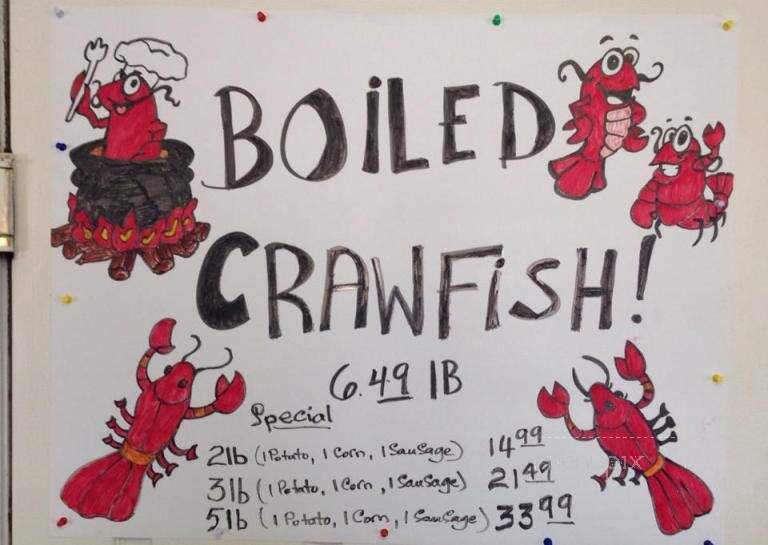 BOiLED
CRAWFiSH!
6.49 lB
Special
2lb (1 Potato, 1 Corn, 1 Sausage) 14.99
3lb (1 Potato, 1 Corn, 1 Sausage) 21.49
5lb (1 Potato, 1 Corn, 1 Sausage) 33.99